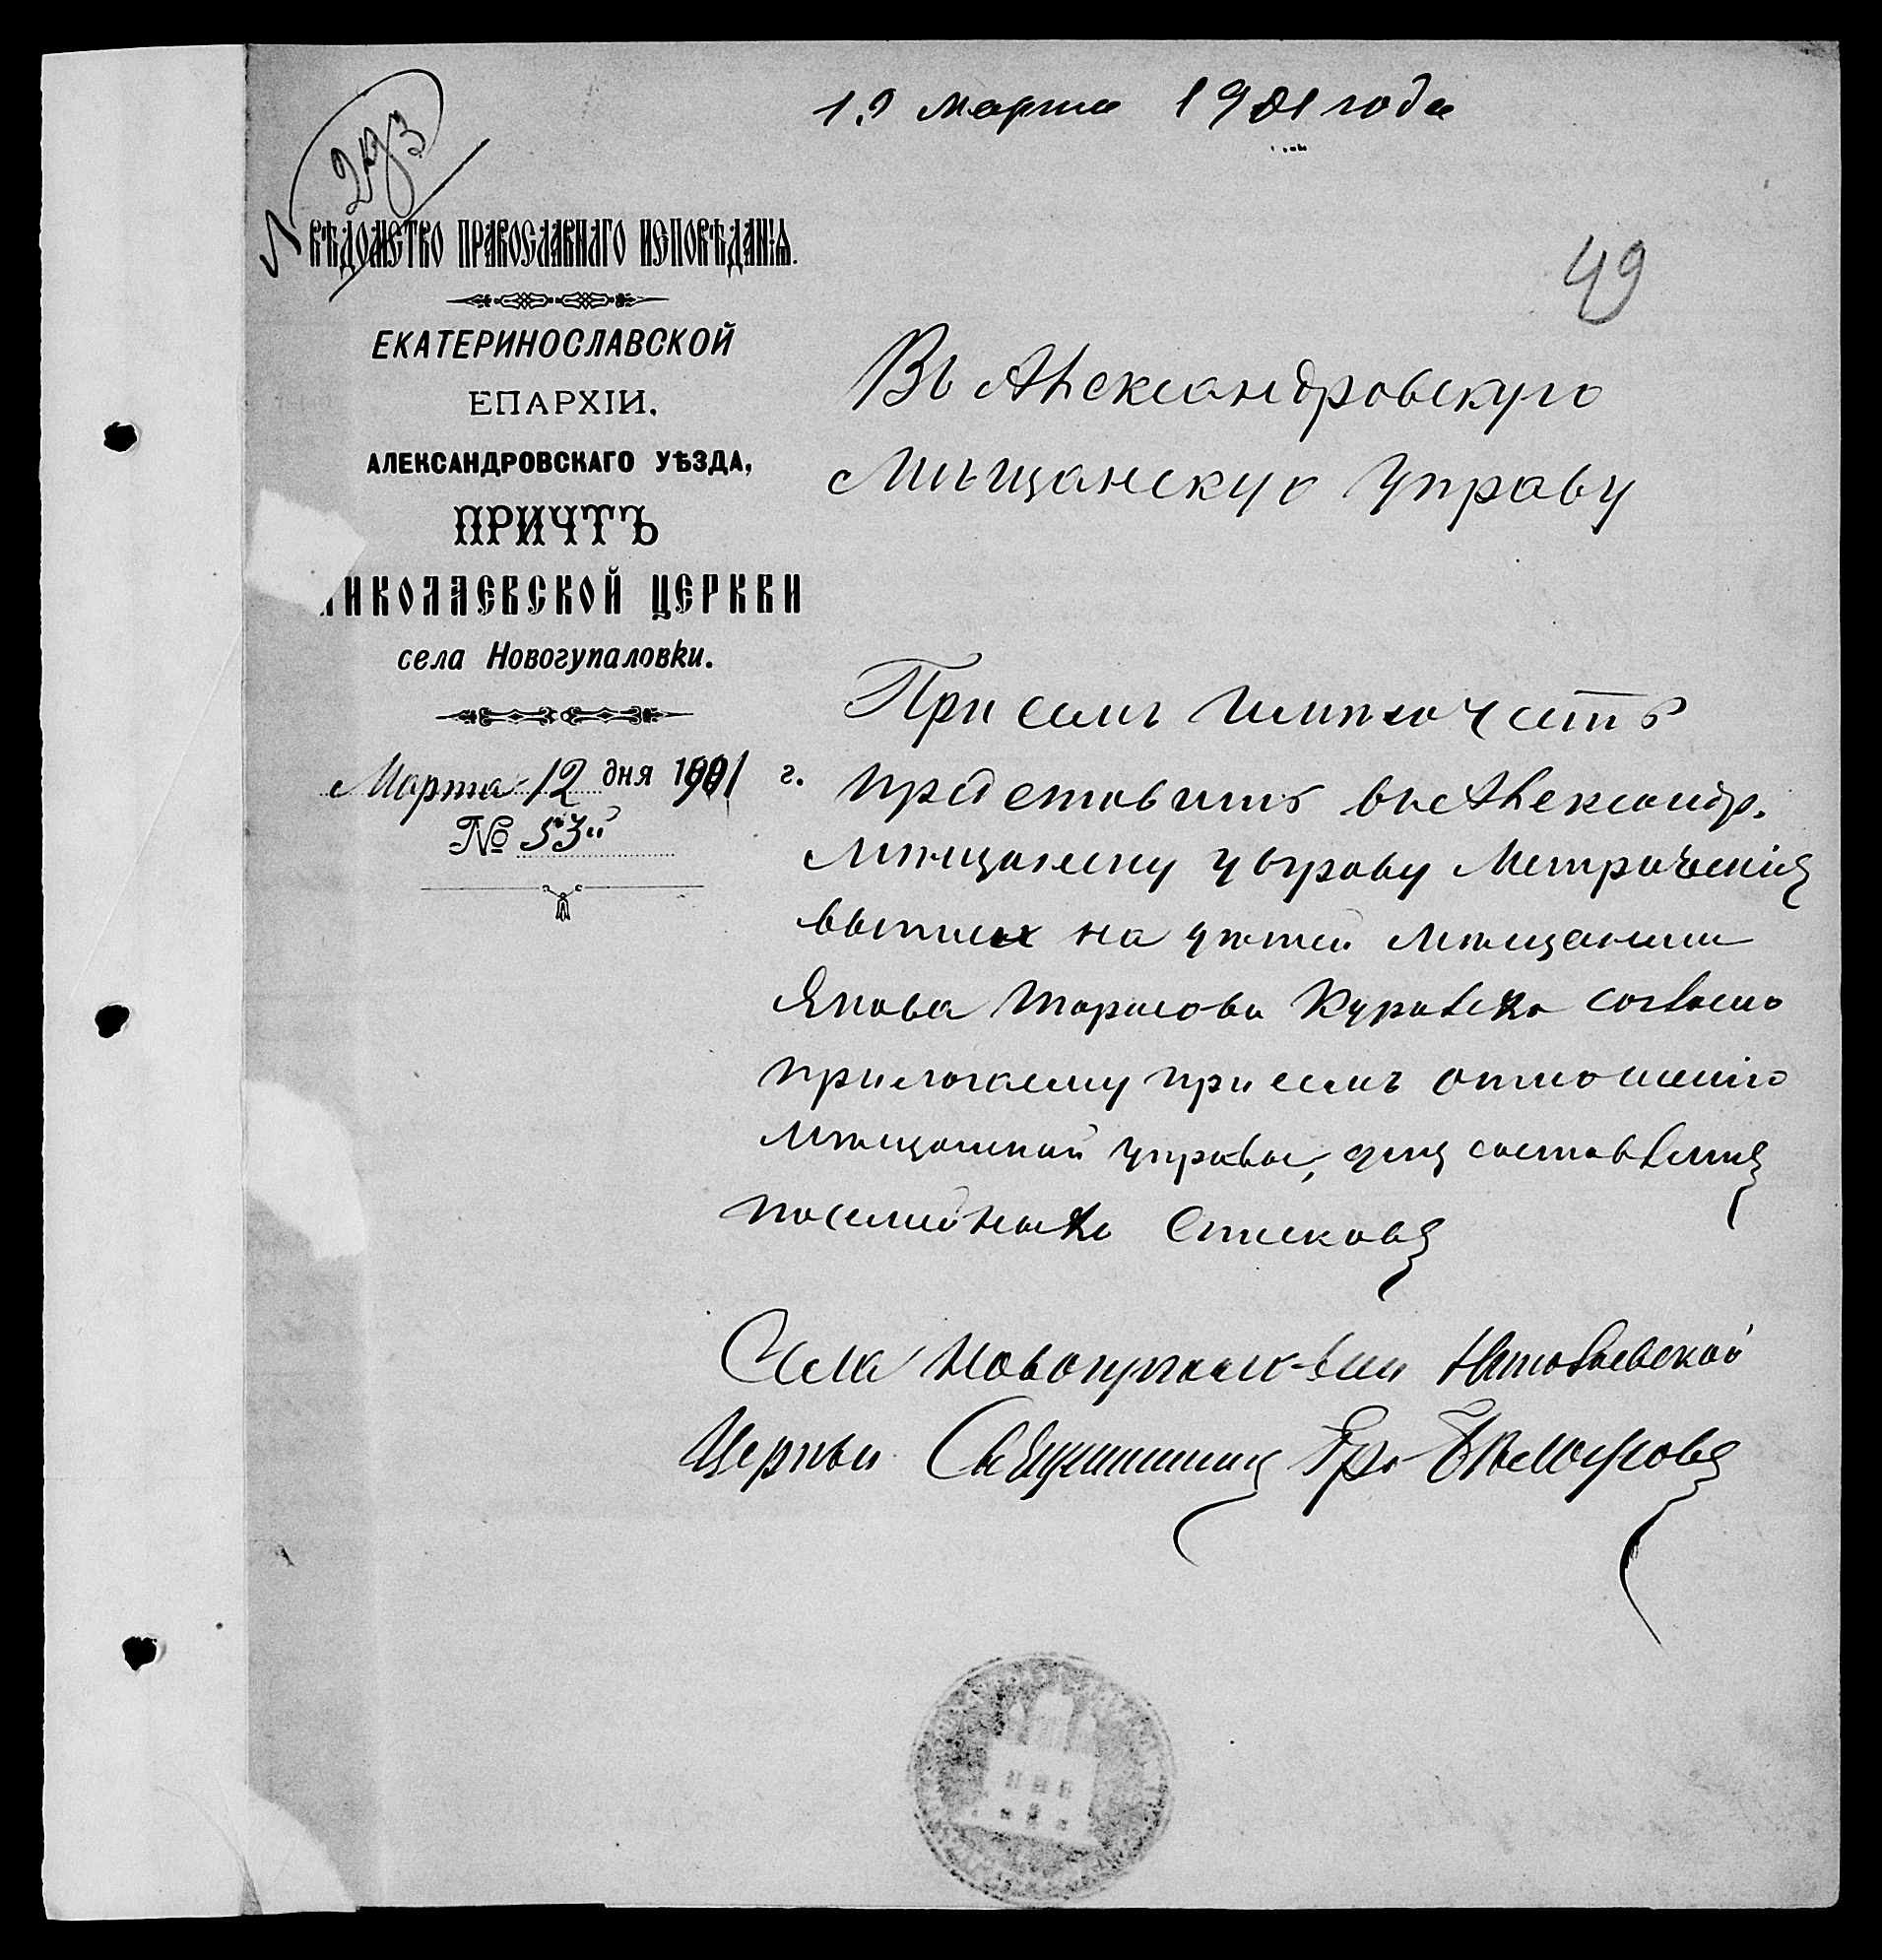 19 марта 1901 года
№ 273
49
ВѢДОМСТВО ПРАВОСЛАВНАГО ИСПОВѢДАНІЯ.
ЕКАТЕРИНОСЛАВСКОЙ
ЕПАРХІИ,
АЛЕКСАНДРОВСКАГО УѢЗДА,
ПРИЧТЪ
НИКОЛАЕВСКОЙ ЦЕРКВИ
села Новогупаловки.
Марта 12 дня 1901 г.
№ 53
Въ Александровскую
Мѣщанскую Управу
При семъ имѣю честь
представить въ Александр.
Мѣщанску управу Метрическія
выписи на дѣтей мѣщанина
Якова Тарасова Куравско согласно
приложему при семъ отношенію
Мѣщанской управы, для составленія
посемейныхъ списковъ
Села Новогупаловки Николаевской
Церкви Священникъ